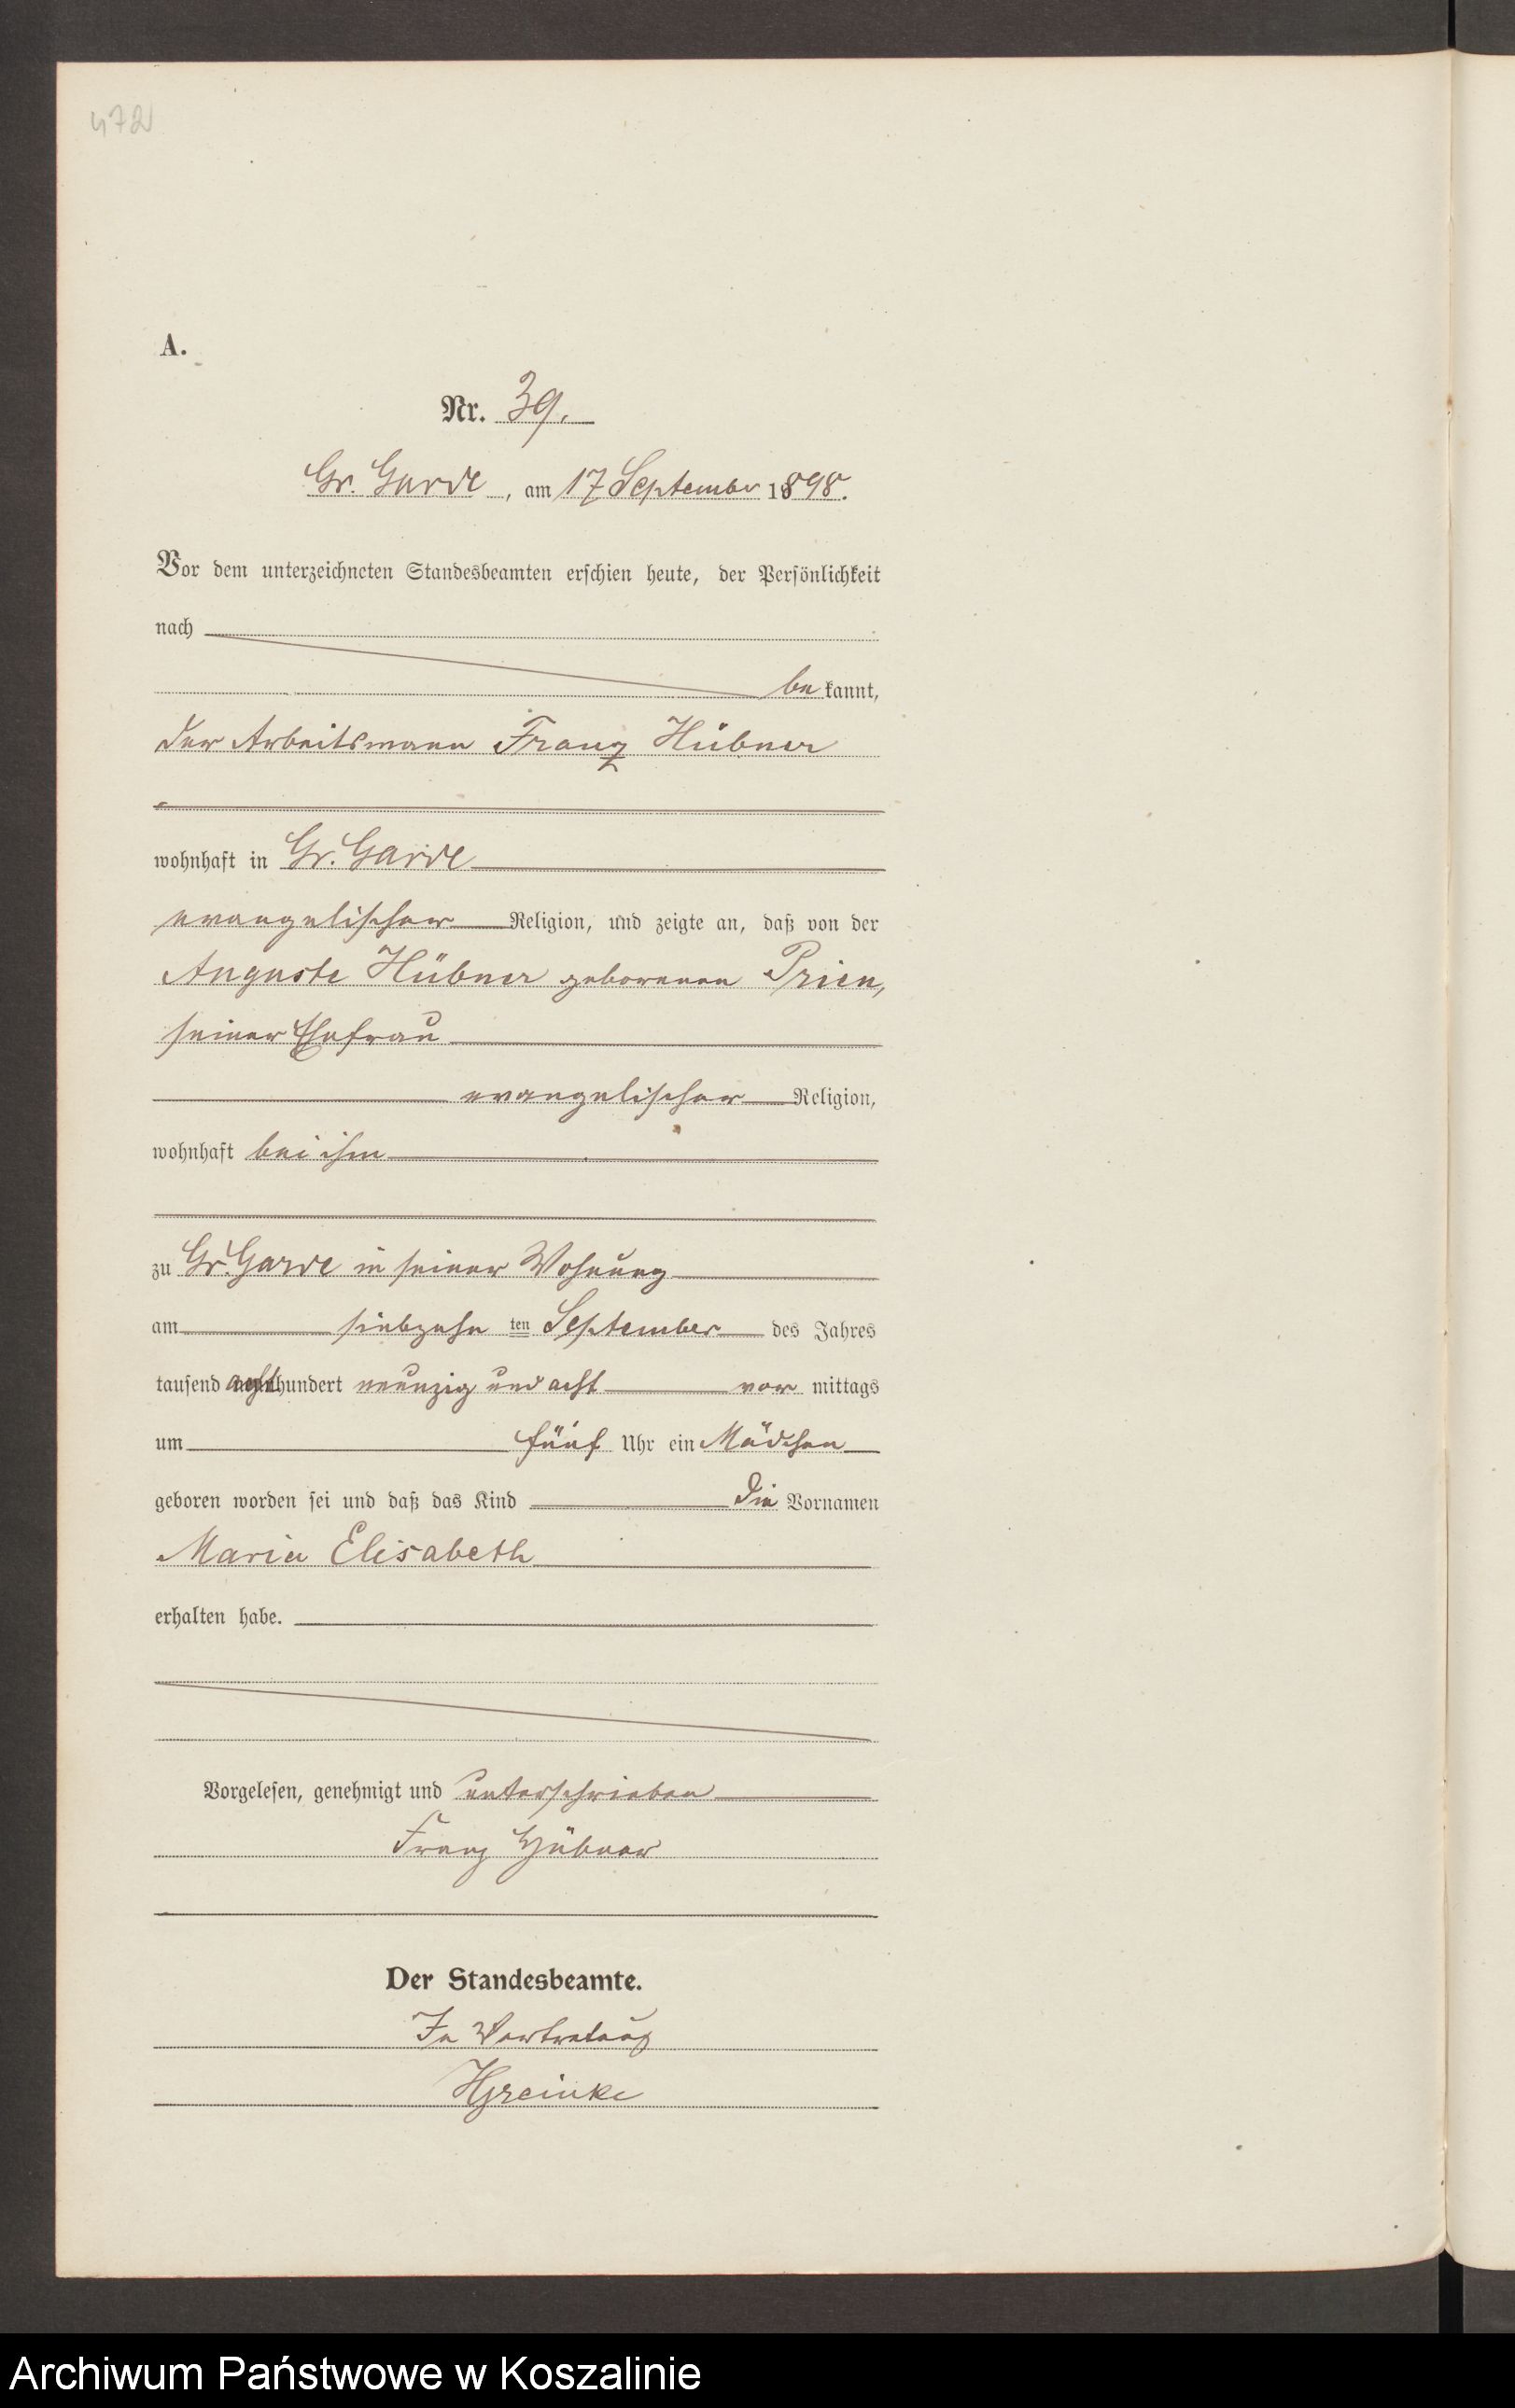 472
A.
Nr. 39.
Gr. Garde, am 17 September 1898.
Vor dem unterzeichneten Standesbeamten erschien heute, der Persönlichkeit
nach
be kannt,
der Arbeitsmann Franz Hübner
wohnhaft in Gr. Garde
evangelischer Religion, und zeigte an, daß von der
Auguste Hübner geborenen Prien,
seiner Ehefrau
evangelischer Religion,
wohnhaft bei ihm
zu Gr. Garde in seiner Wohnung
am siebzehn ten September des Jahres
tausend achthundert neunzig und acht vor mittags
um fünf Uhr ein Mädchen
geboren worden sei und daß das Kind die Vornamen
Maria Elisabeth
erhalten habe.
Vorgelesen, genehmigt und unterschrieben
Franz Hübner
Der Standesbeamte.
In Vertretung
Archiwum Państwowe w Koszalinie